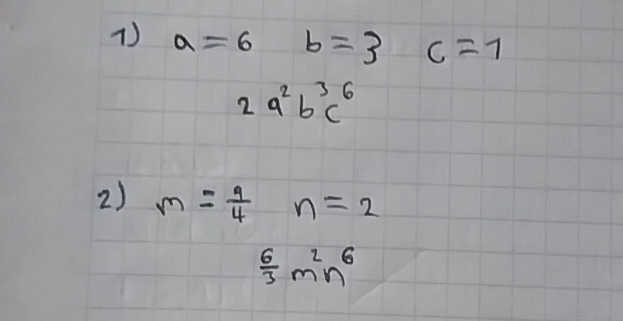 1) a = 6 b = 3 c = 1
2 a² b³ c⁶
2) m = 9/4 n = 2
6/3 m² n⁶